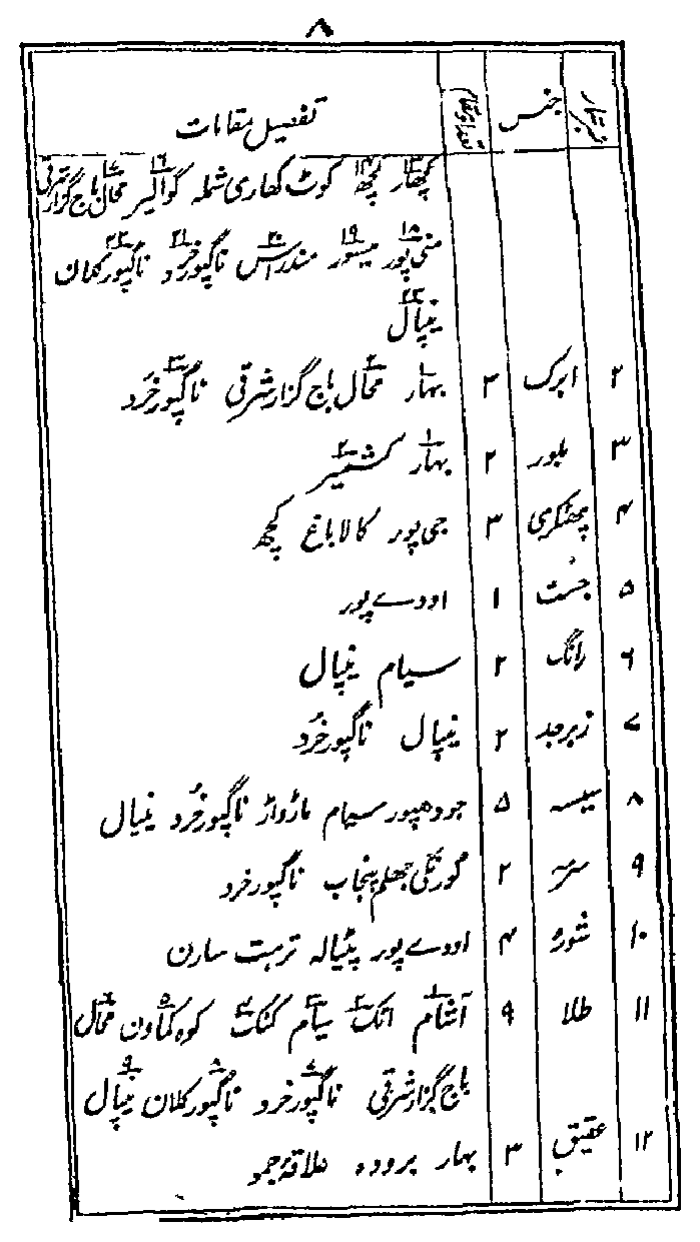 ۸
نمبر شمار جنس تعداد مقام تفصیل مقامات
کچھار کچھ کوٹ کھاری شملہ گوالیر محال باج گزار شرقی
۱۸ منی پور ۱۹ میسور ۲۰ مندراس ۲۱ ناگپور خرد ۲۲ ناگپور کلان
۲۳ نیپال
۲ ابرک ۳ ۱ بہار ۲ محال باج گزار شرقی ۳ ناگپور خُرد
۳ بلور ۲ ۱ بہار ۲ کشمیر
۴ پھٹکری ۳ جی پور کالا باغ کچھ
۵ جست ۱ اودے پور
۶ رانگ ۲ سیام نیپال
۷ زبرجد ۲ نیپال ناگپور خُرد
۸ سیسہ ۵ جودھپور سیام ماڑواڑ ناگپور خُرد نیپال
۹ سرمہ ۲ گورنگی جھلم پنجاب ناگپور خرد
۱۰ شورہ ۴ اودے پور پٹیالہ ترہت سارن
۱۱ طلا ۹ ۱ آشام ۲ اٹک ۳ سیام ۴ کٹک ۵ کوہ کماون ۶ محال
باج گزار شرقی ۷ ناگپور خرد ۸ ناگپور کلان ۹ نیپال
۱۲ عقیق ۳ بہار برودہ علاقۂ جمو